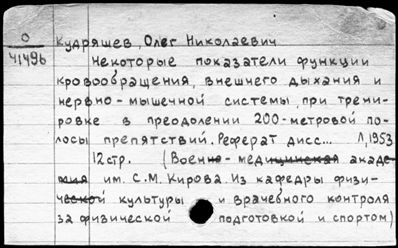 О
41496
Кудряшев, Олег Николаевич
Некоторые показатели функции
кровообращения, внешнего дыхания и
нервно-мышечной системы при трени-
ровке в преодолении 200-метровой по-
лосы препятствий. Реферат дисс... Л, 1953
12стр. (Военно-медицинская акаде-
мия им. С.М. Кирова. Из кафедры физи-
ческой культуры и врачебного контроля
за физической подготовкой и спортом)